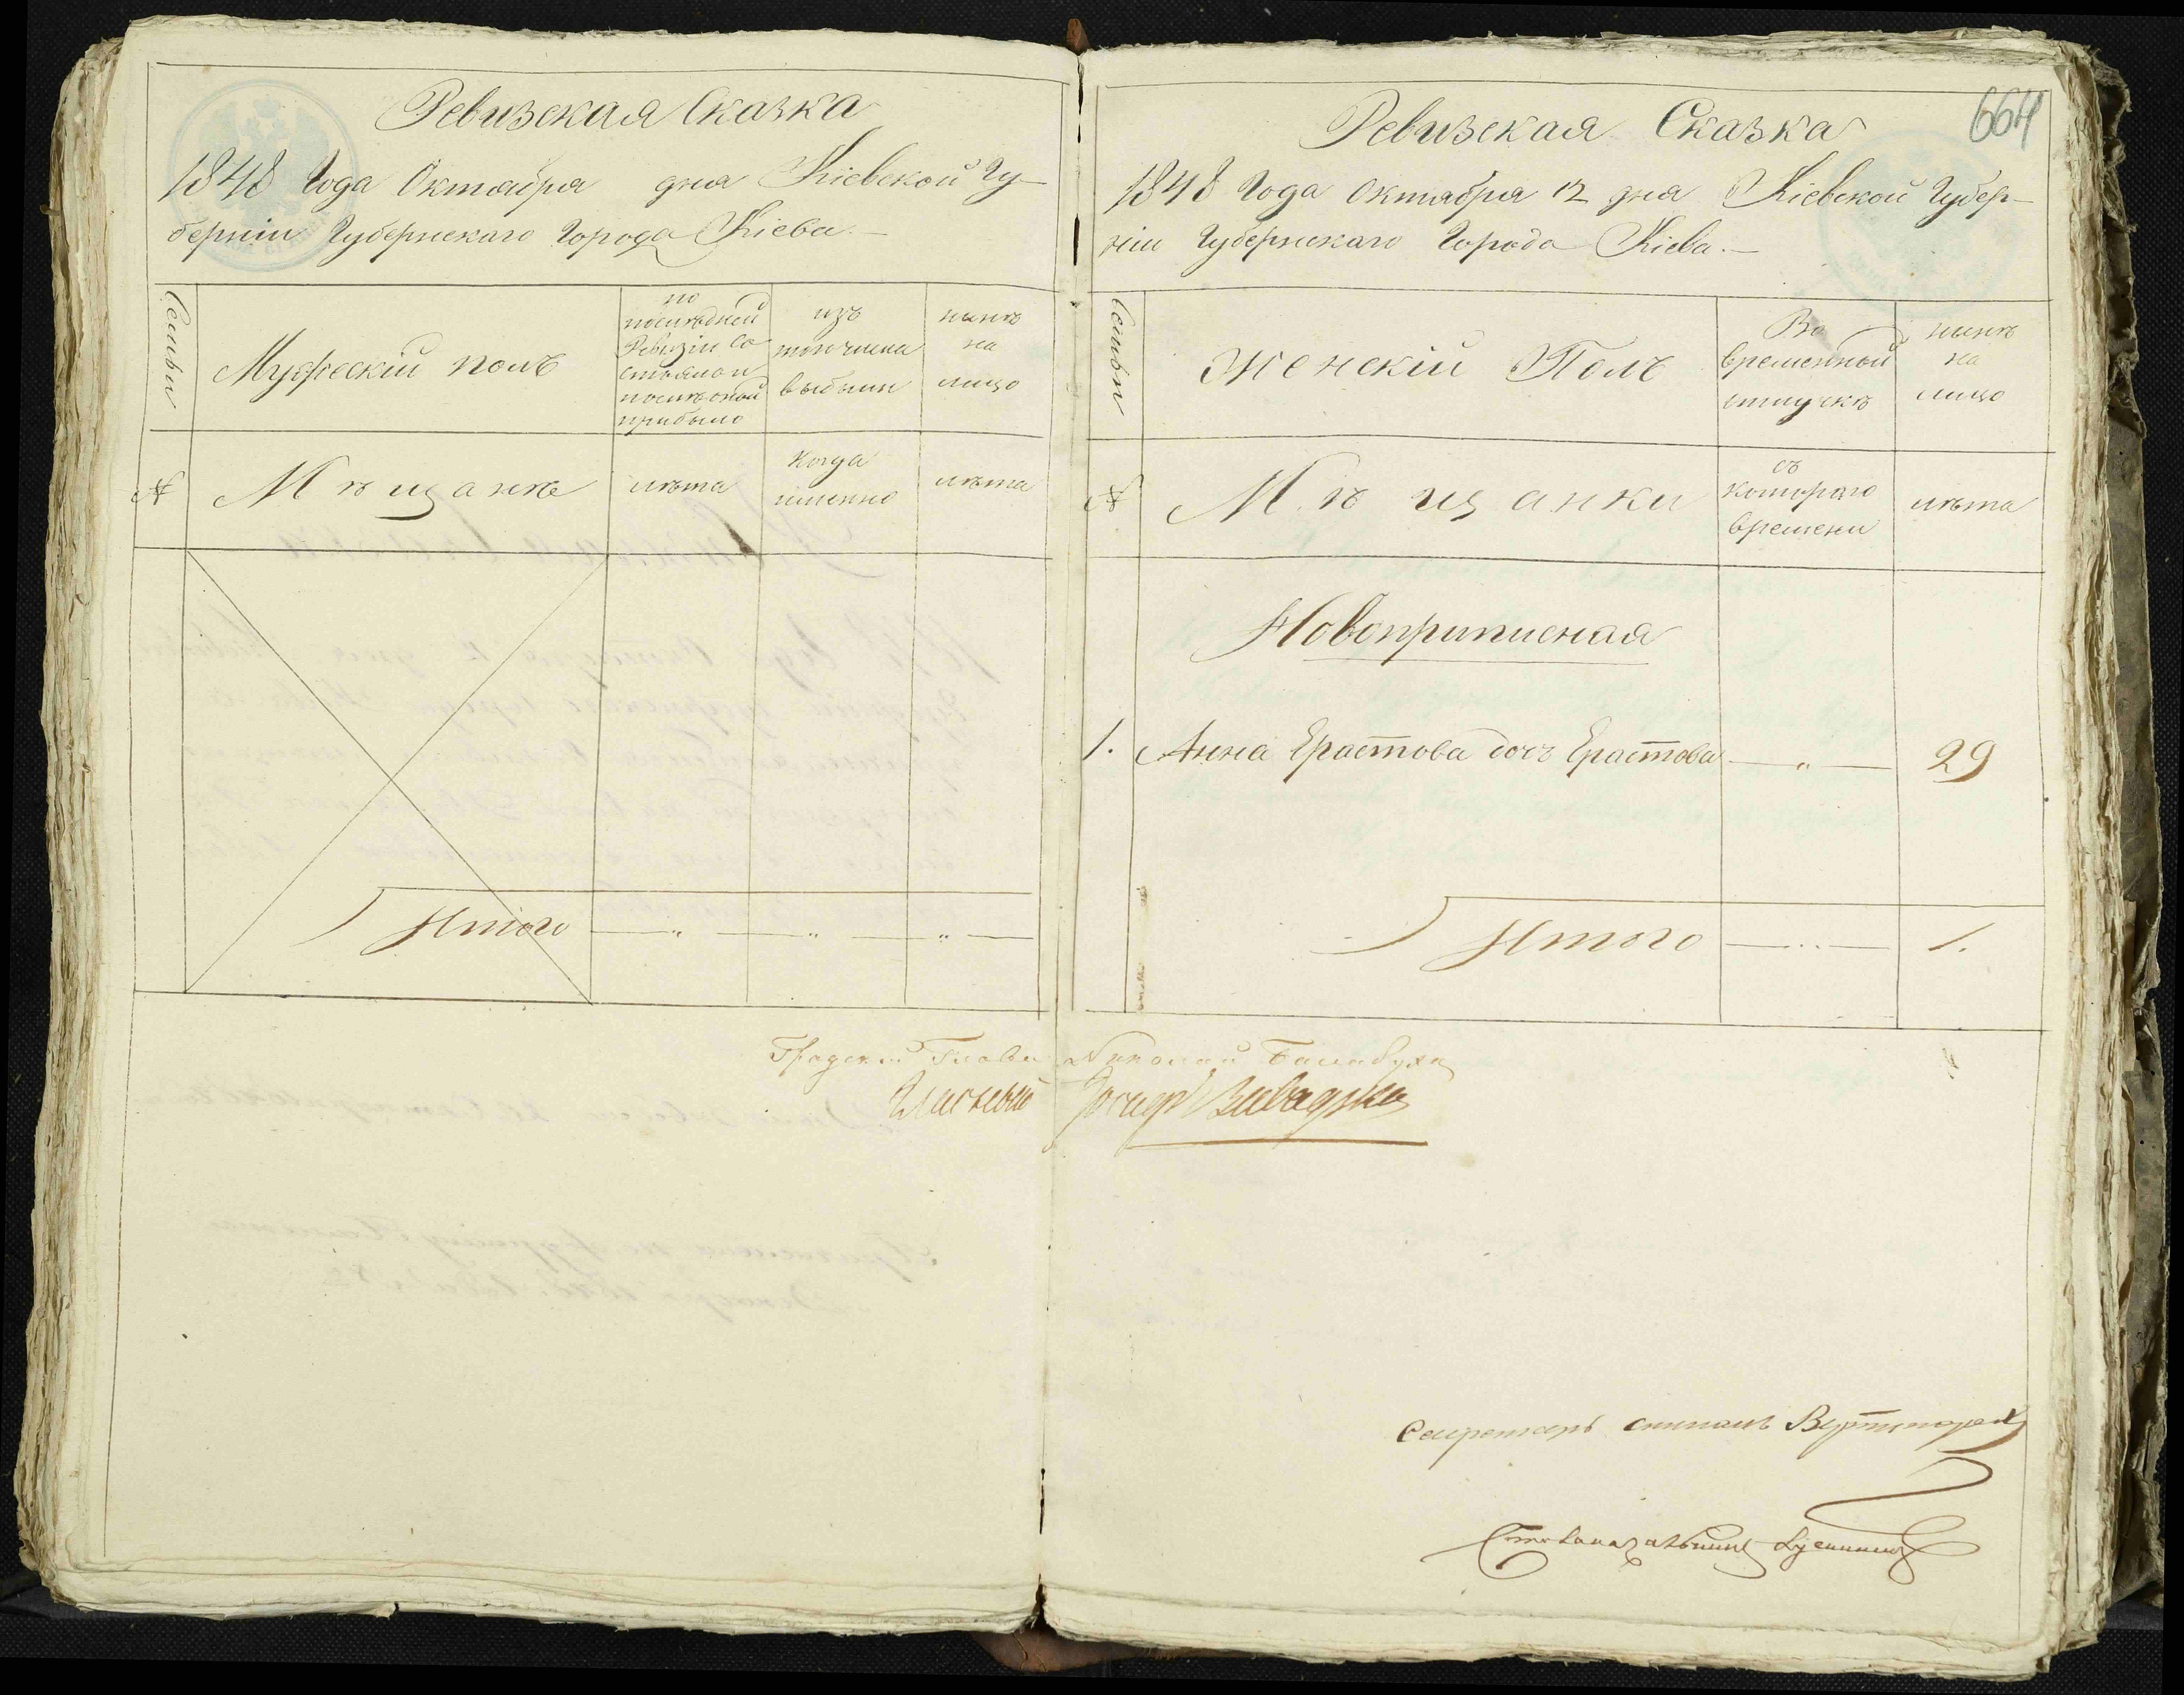 Ревизская Сказка
1848 Года Октября дня Кіевской Гу-
берніи Губернскаго Города Кіева.—
Семьи
Мужескій полъ
по
последней
Ревизіи Со
стояло и
последней
прибыло
изъ
того числа
выбыли
нынѣ
на
лицо
№
Мѣщане
лѣта
Когда
именно
лѣта
Итого — „ — „ — „ —
664
Ревизская Сказка
1848 Года Октября 12 дня Кіевской Губер-
ніи Губернскаго Города Кіева.—
Семьи
Женскій Полъ
Во
временной
отлучкѣ
нынѣ
на
лицо
№
Мѣщанки
съ
котораго
времени
лѣта
Новоприписная
1. Анна Ерастова дочь Ерастова — „ — 29
Итого — „ — 1.
Градскій Глава Николай Балабуха
Гласный Іосифъ Завадскій
Секретарь